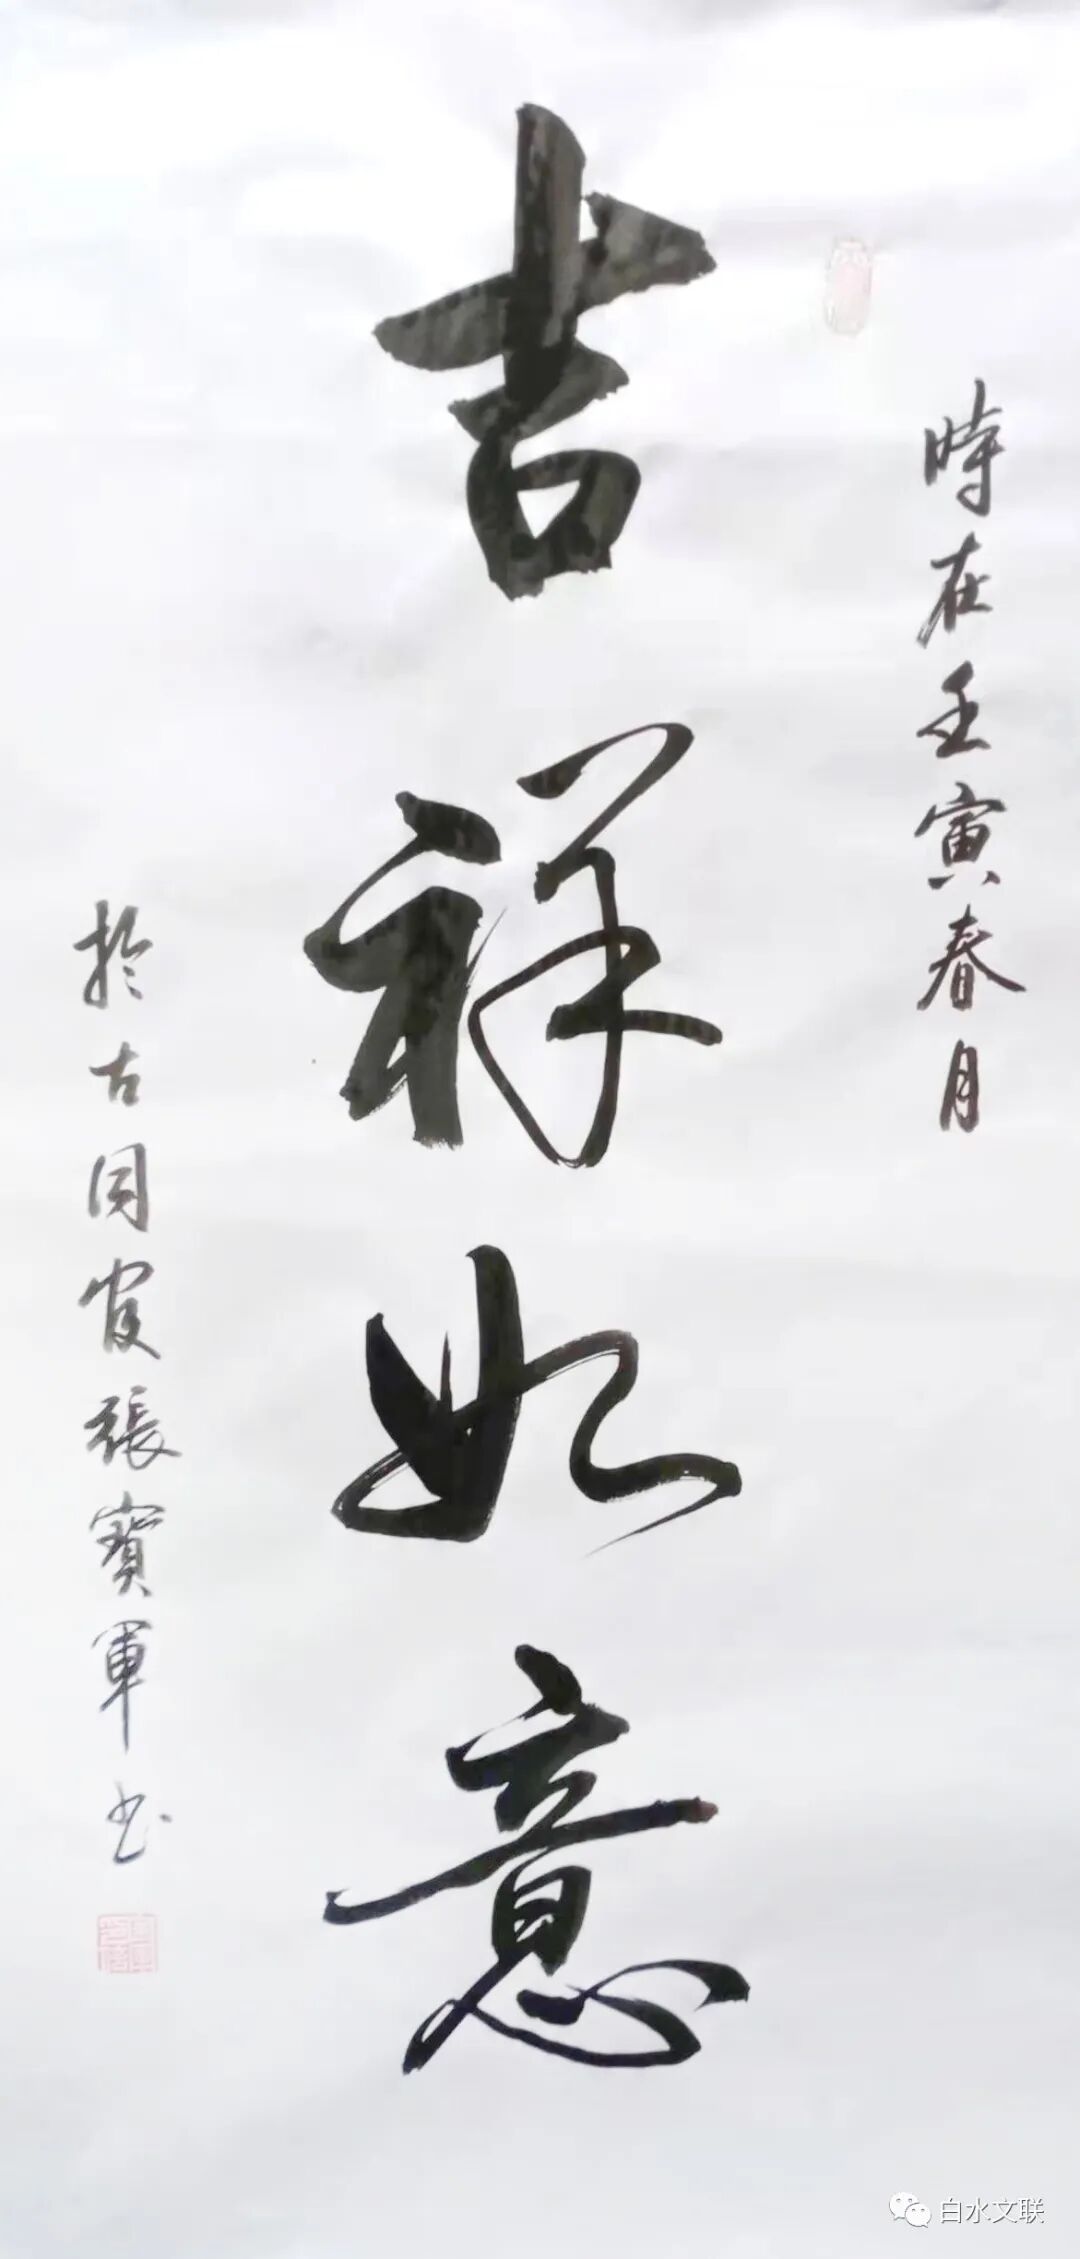 時在壬寅春月
吉祥如意
於古同官張寶軍书
白水文联